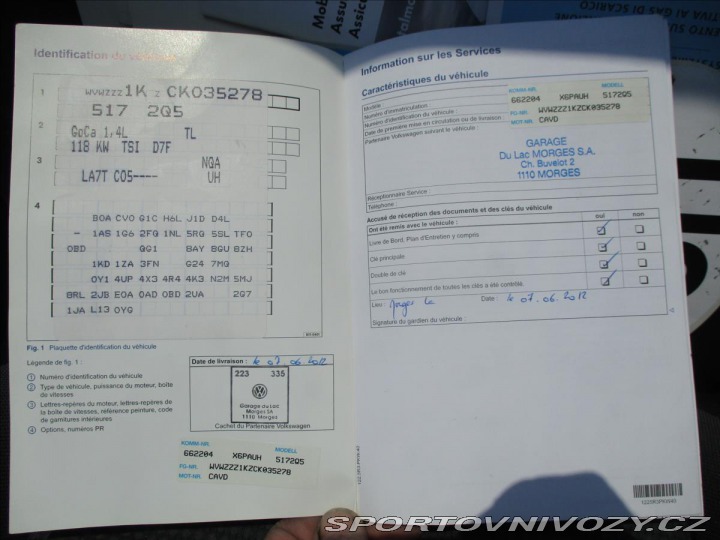 Identification du véhicule
1 WVWZZZ 1K Z CK035278
517 2Q5
2 GoCa 1,4L TL
118 KW TSI D7F
3 NQA
LA7T C05---- UH
4
B0A CV0 G1C H6L J1D D4L
- 1AS 1G6 2FG 1NL 5RG 5SL TF0
0BD GG1 BAY 8GU 8ZH
1KD 1ZA 3FN G24 7MG
0Y1 4UP 4X3 4R4 4K3 N2M 5MJ
8RL 2JB E0A 0AD 0BD 2UA 2G7
1JA L13 0YG
Fig. 1 Plaquette d'identification du véhicule
Légende de fig. 1 :
1 Numéro d'identification du véhicule
2 Type de véhicule, puissance du moteur, boîte de vitesses
3 Lettres-repères du moteur, lettres-repères de la boîte de vitesses, référence peinture, code de garnitures intérieures
4 Options, numéros PR
Date de livraison : le 07.06.2012
223 335
Garage du Lac
Morges SA
1110 Morges
Cachet du Partenaire Volkswagen
KOMM-NR. MODELL
662204 X6PAUH 5172Q5
FG-NR. WVWZZZ1KZCK035278
MOT-NR. CAVD
Information sur les Services
Caractéristiques du véhicule
KOMM-NR. MODELL
662204 X6PAUH 5172Q5
FG-NR. WVWZZZ1KZCK035278
MOT-NR. CAVD
Modèle :
Numéro d'immatriculation :
Numéro d'identification du véhicule :
Date de première mise en circulation ou de livraison :
Partenaire Volkswagen suivant le véhicule :
GARAGE
Du Lac MORGES S.A.
Ch. Buvelot 2
1110 MORGES
Réceptionnaire Service :
Téléphone :
Accusé de réception des documents et des clés du véhicule
Ont été remis avec le véhicule : oui non
Livre de Bord, Plan d'Entretien y compris
Clé principale
Double de clé
Le bon fonctionnement de toutes les clés a été contrôlé.
Lieu : Morges le Date : le 07.06.2012
Signature du gardien du véhicule :
SPORTOVNIVOZY.CZ